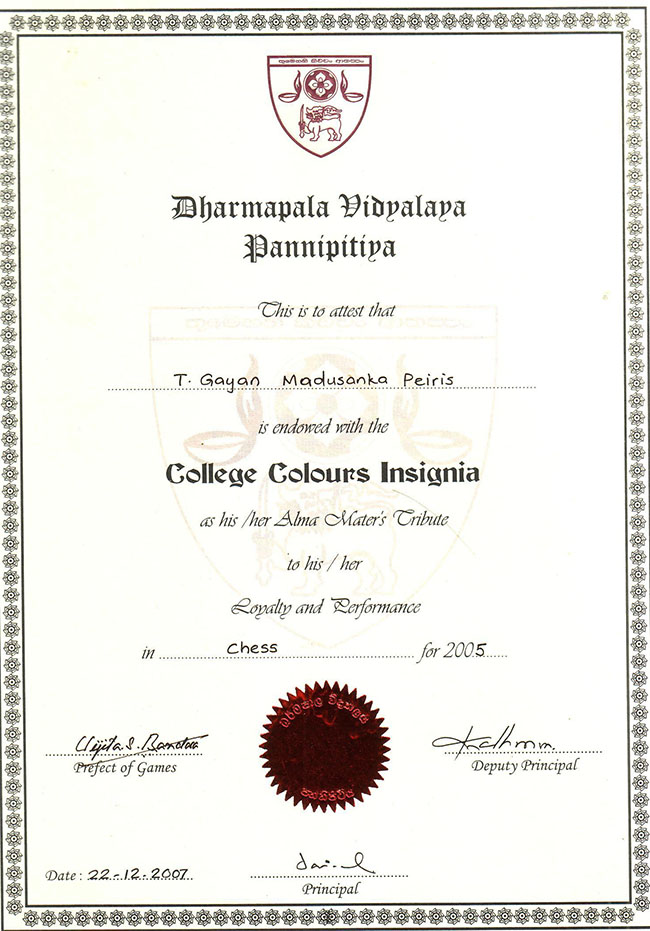 Dharmapala Vidyalaya
Pannipitiya
This is to attest that
T. Gayan Madusanka Peiris
is endowed with the
College Colours Insignia
as his /her Alma Mater's Tribute
to his / her
Loyalty and Performance
in Chess for 2005
Prefect of Games
Deputy Principal
Date : 22-12-2007
Principal